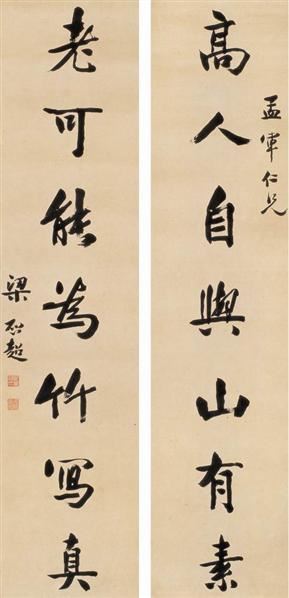 孟軍仁兄
高人自與山有素
老可能為竹寫真
梁啟超